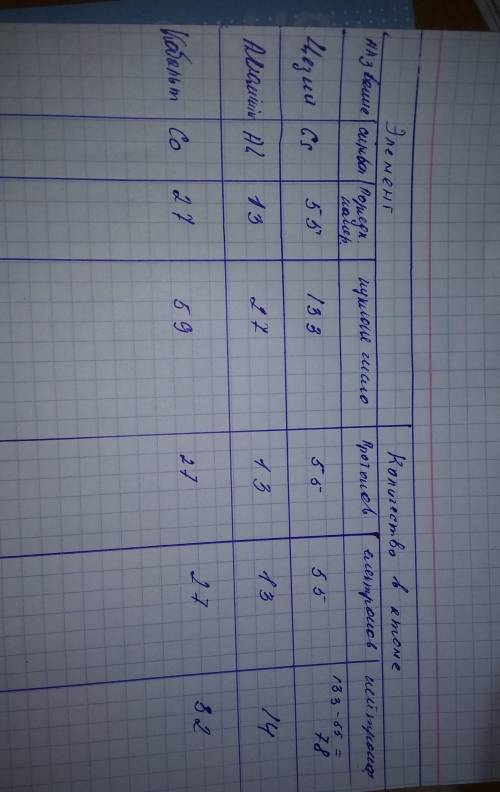 Элемент Количество в атоме
название символ Порядк. номер. нуклоне число протонов електронов нейтронов
Цезий Cs 55 133 55 55 133-55=
78
Алюминий Al 13 27 13 13 14
Кобальт Co 27 59 27 27 32